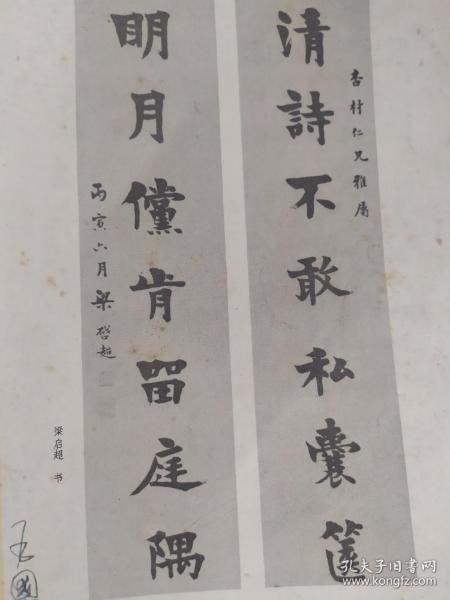 杏村仁兄雅属
清詩不敢私囊箧
明月儻肯留庭隅
丙寅六月梁啓超
梁启超 书
王國
孔夫子旧书网
www.kongfz.com